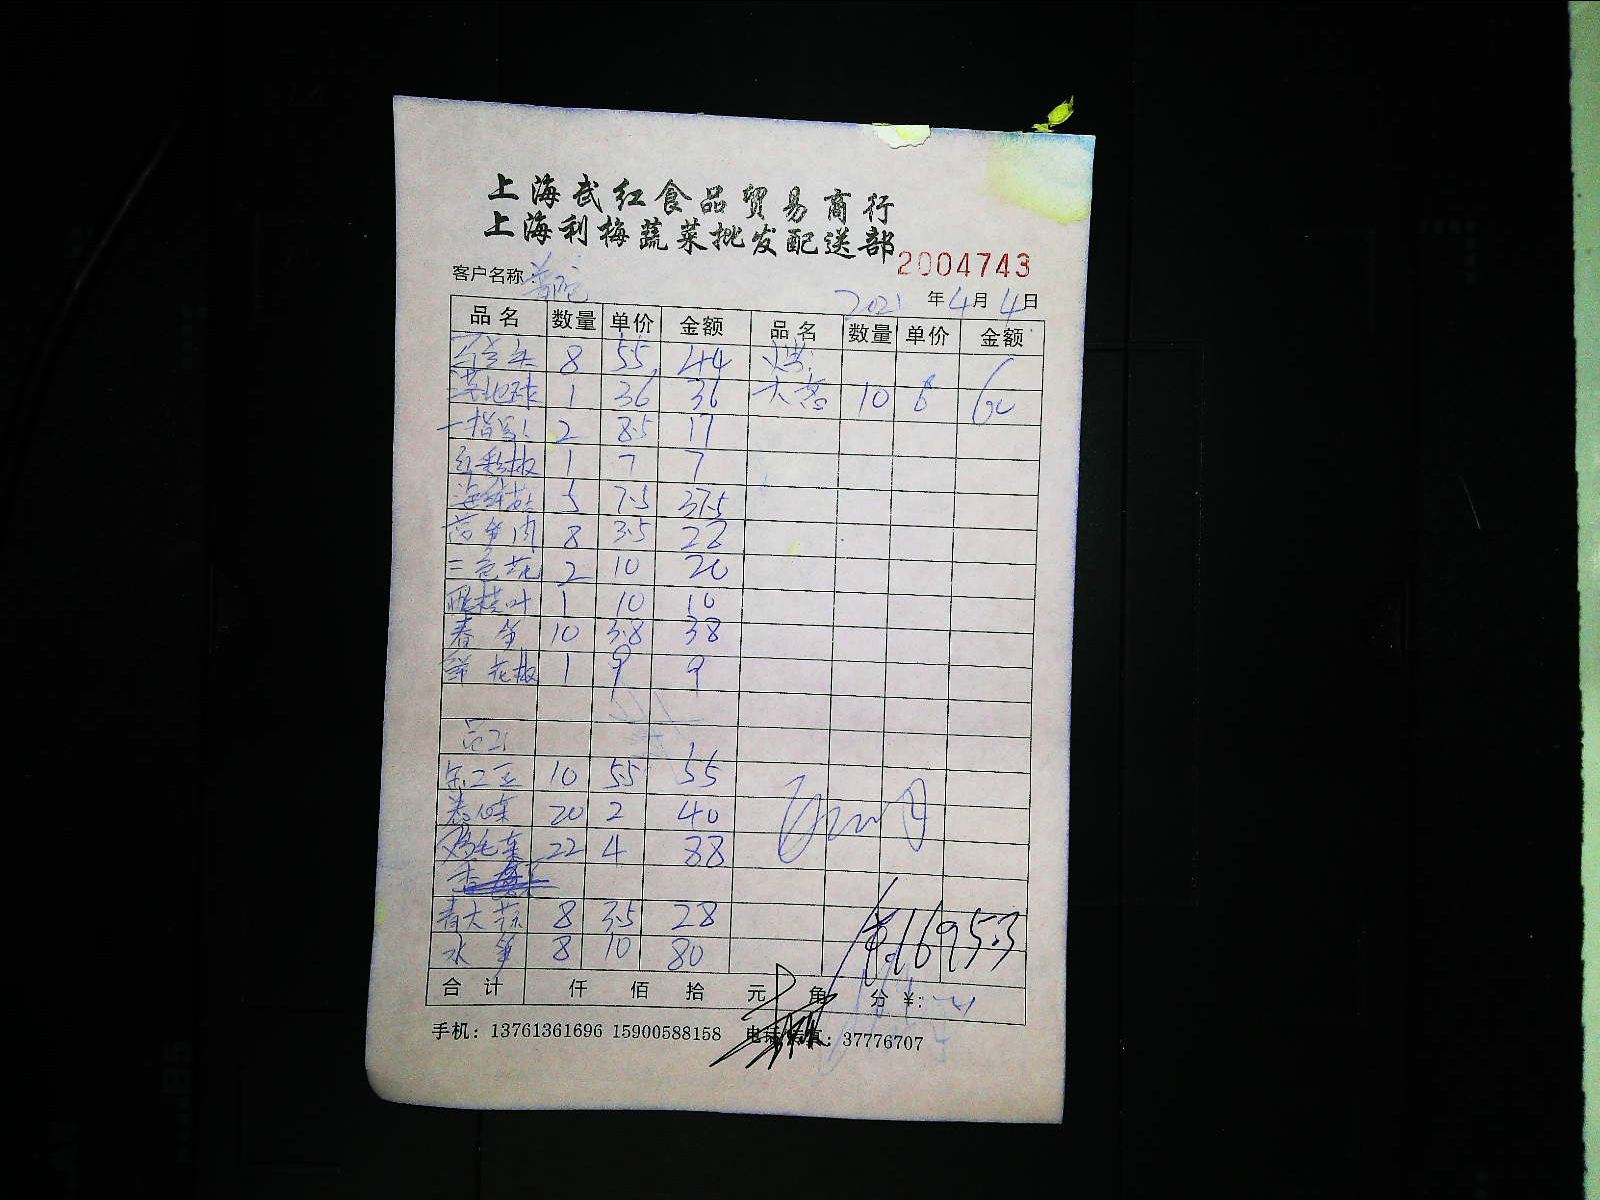 上海武红食品贸易商行
上海利梅蔬菜批发配送部
2004743
客户名称:
2021 年 4 月 4 日
品名 数量 单价 金额 品名 数量 单价 金额
8 55 44
1 36 36 大葱 10 6 60
2 8.5 17
红彩椒 1 7 7
海鲜菇 5 7.5 37.5
莴笋肉 8 3.5 28
三色花 2 10 20
1 10 10
春笋 10 3.8 38
鲜花椒 1 9 9
员工
10 5.5 55
卷心菜 20 2 40
鸡毛菜 22 4 88
青大蒜 8 3.5 28
水笋 8 10 80
1695.3
合计 仟 佰 拾 元 角 分 ¥:
手机: 13761361696 15900588158 电话/传真: 37776707